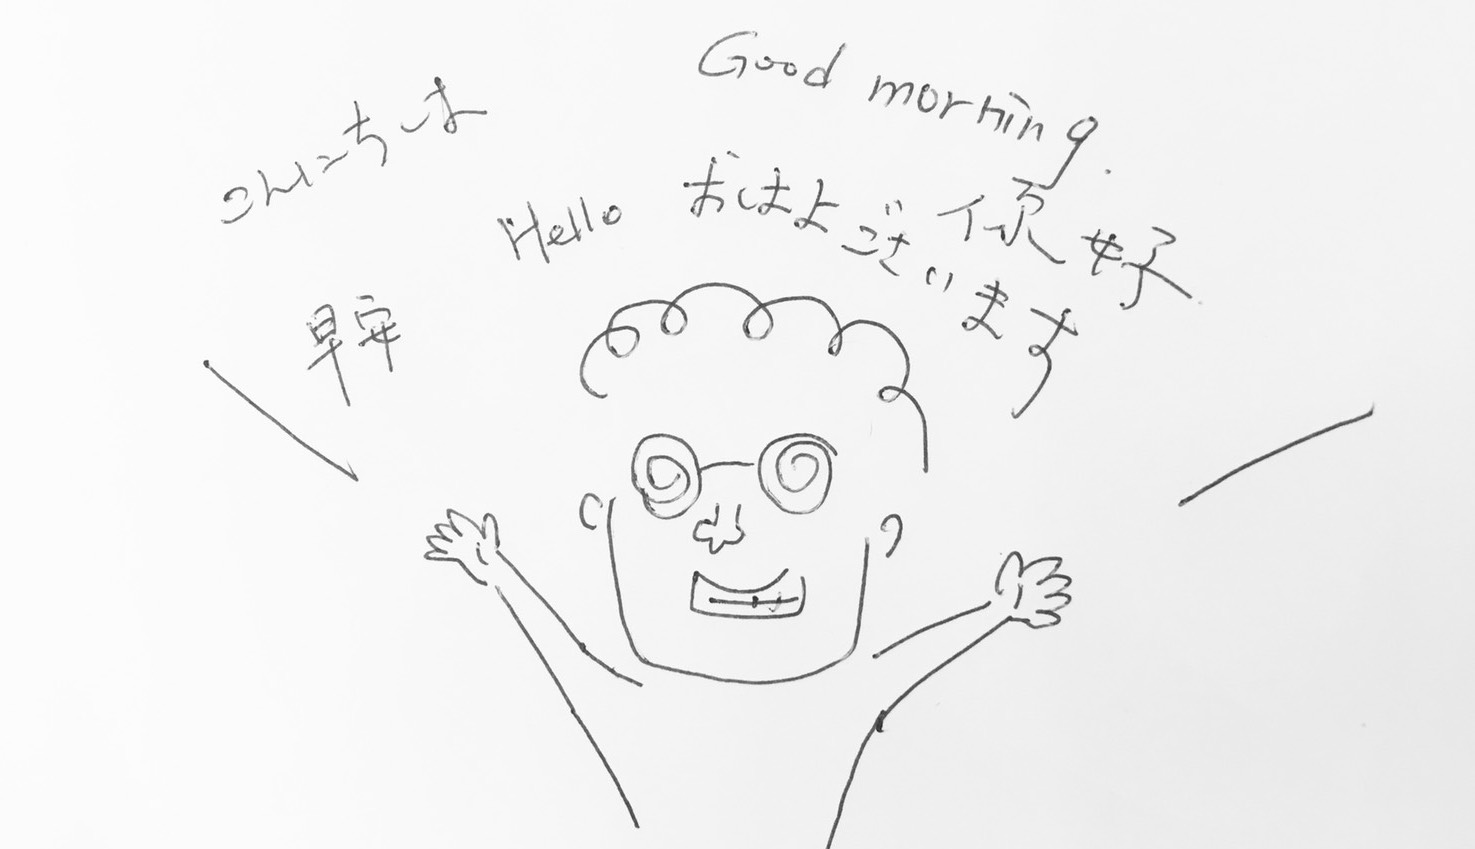 Good morning.
こんにちは
Hello
おはよございます
你好
早安